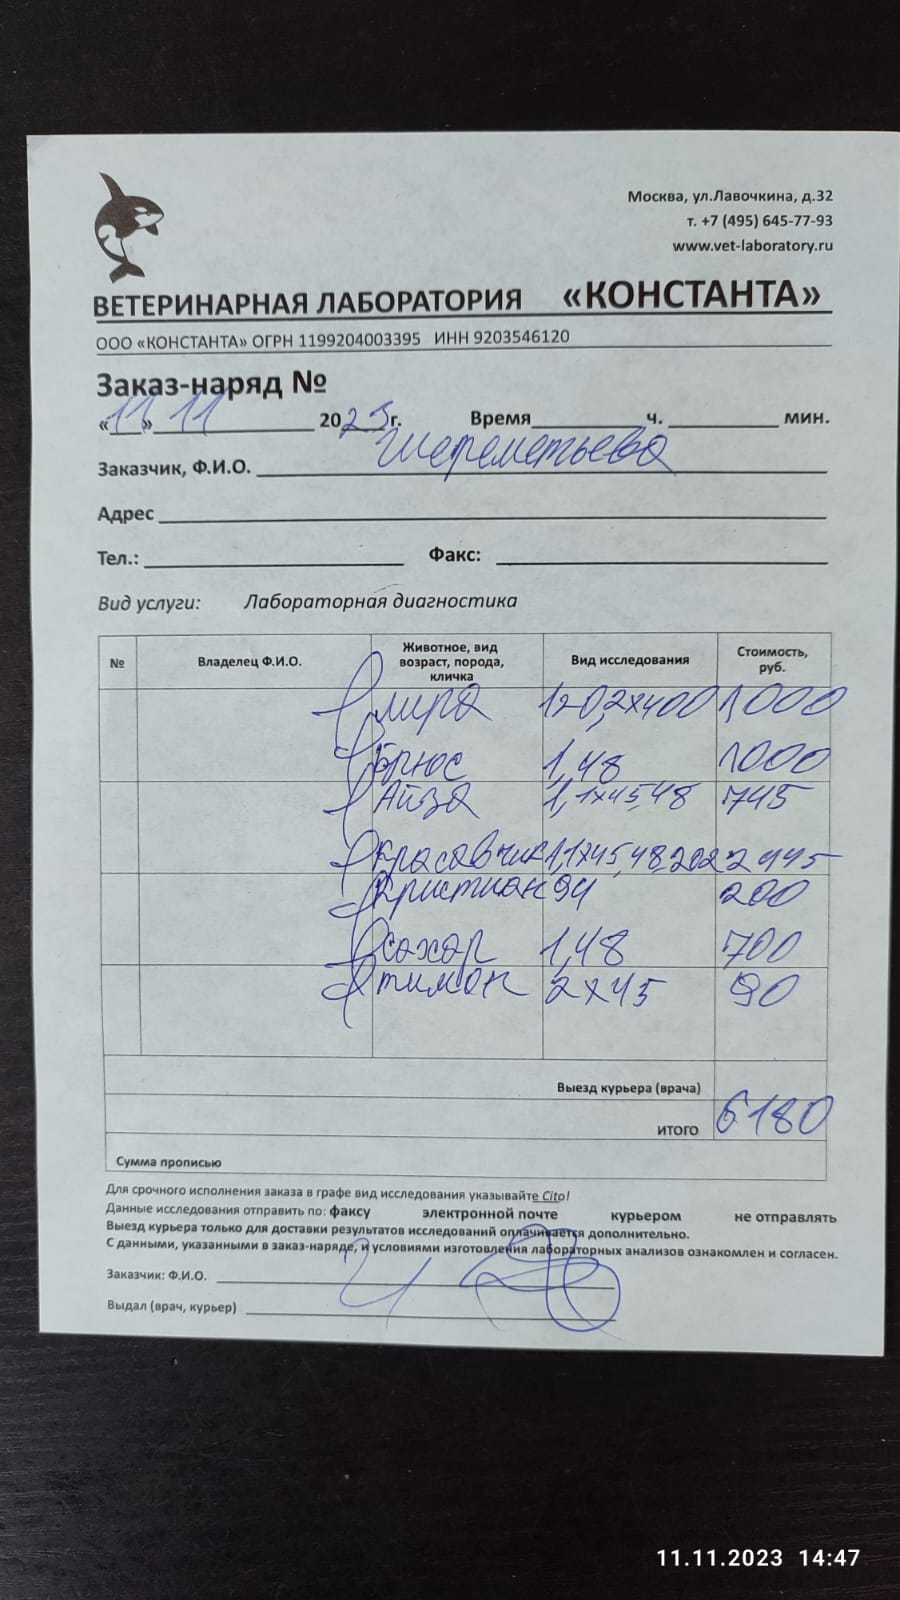 Москва, ул.Лавочкина, д.32
т. +7 (495) 645-77-93
www.vet-laboratory.ru
ВЕТЕРИНАРНАЯ ЛАБОРАТОРИЯ «КОНСТАНТА»
ООО «КОНСТАНТА» ОГРН 1199204003395 ИНН 9203546120
Заказ-наряд №
«11» 11 2023г. Время ч. мин.
Заказчик, Ф.И.О. Шереметьева
Адрес
Тел.: Факс:
Вид услуги: Лабораторная диагностика
№ Владелец Ф.И.О. Животное, вид возраст, порода, кличка Вид исследования Стоимость, руб.
Мира 1000
Брюс 1,48 1000
Айза 1,1х45,48 745
Красавчик 1,1х45,48,202 2445
Кристиан 94 200
Сахар 1,48 700
Тимон 2х45 90
Выезд курьера (врача)
ИТОГО 6180
Сумма прописью
Для срочного исполнения заказа в графе вид исследования указывайте Cito!
Данные исследования отправить по: факсу электронной почте курьером не отправлять
Выезд курьера только для доставки результатов исследований оплачивается дополнительно.
С данными, указанными в заказ-наряде, и условиями изготовления лабораторных анализов ознакомлен и согласен.
Заказчик: Ф.И.О.
Выдал (врач, курьер)
11.11.2023 14:47